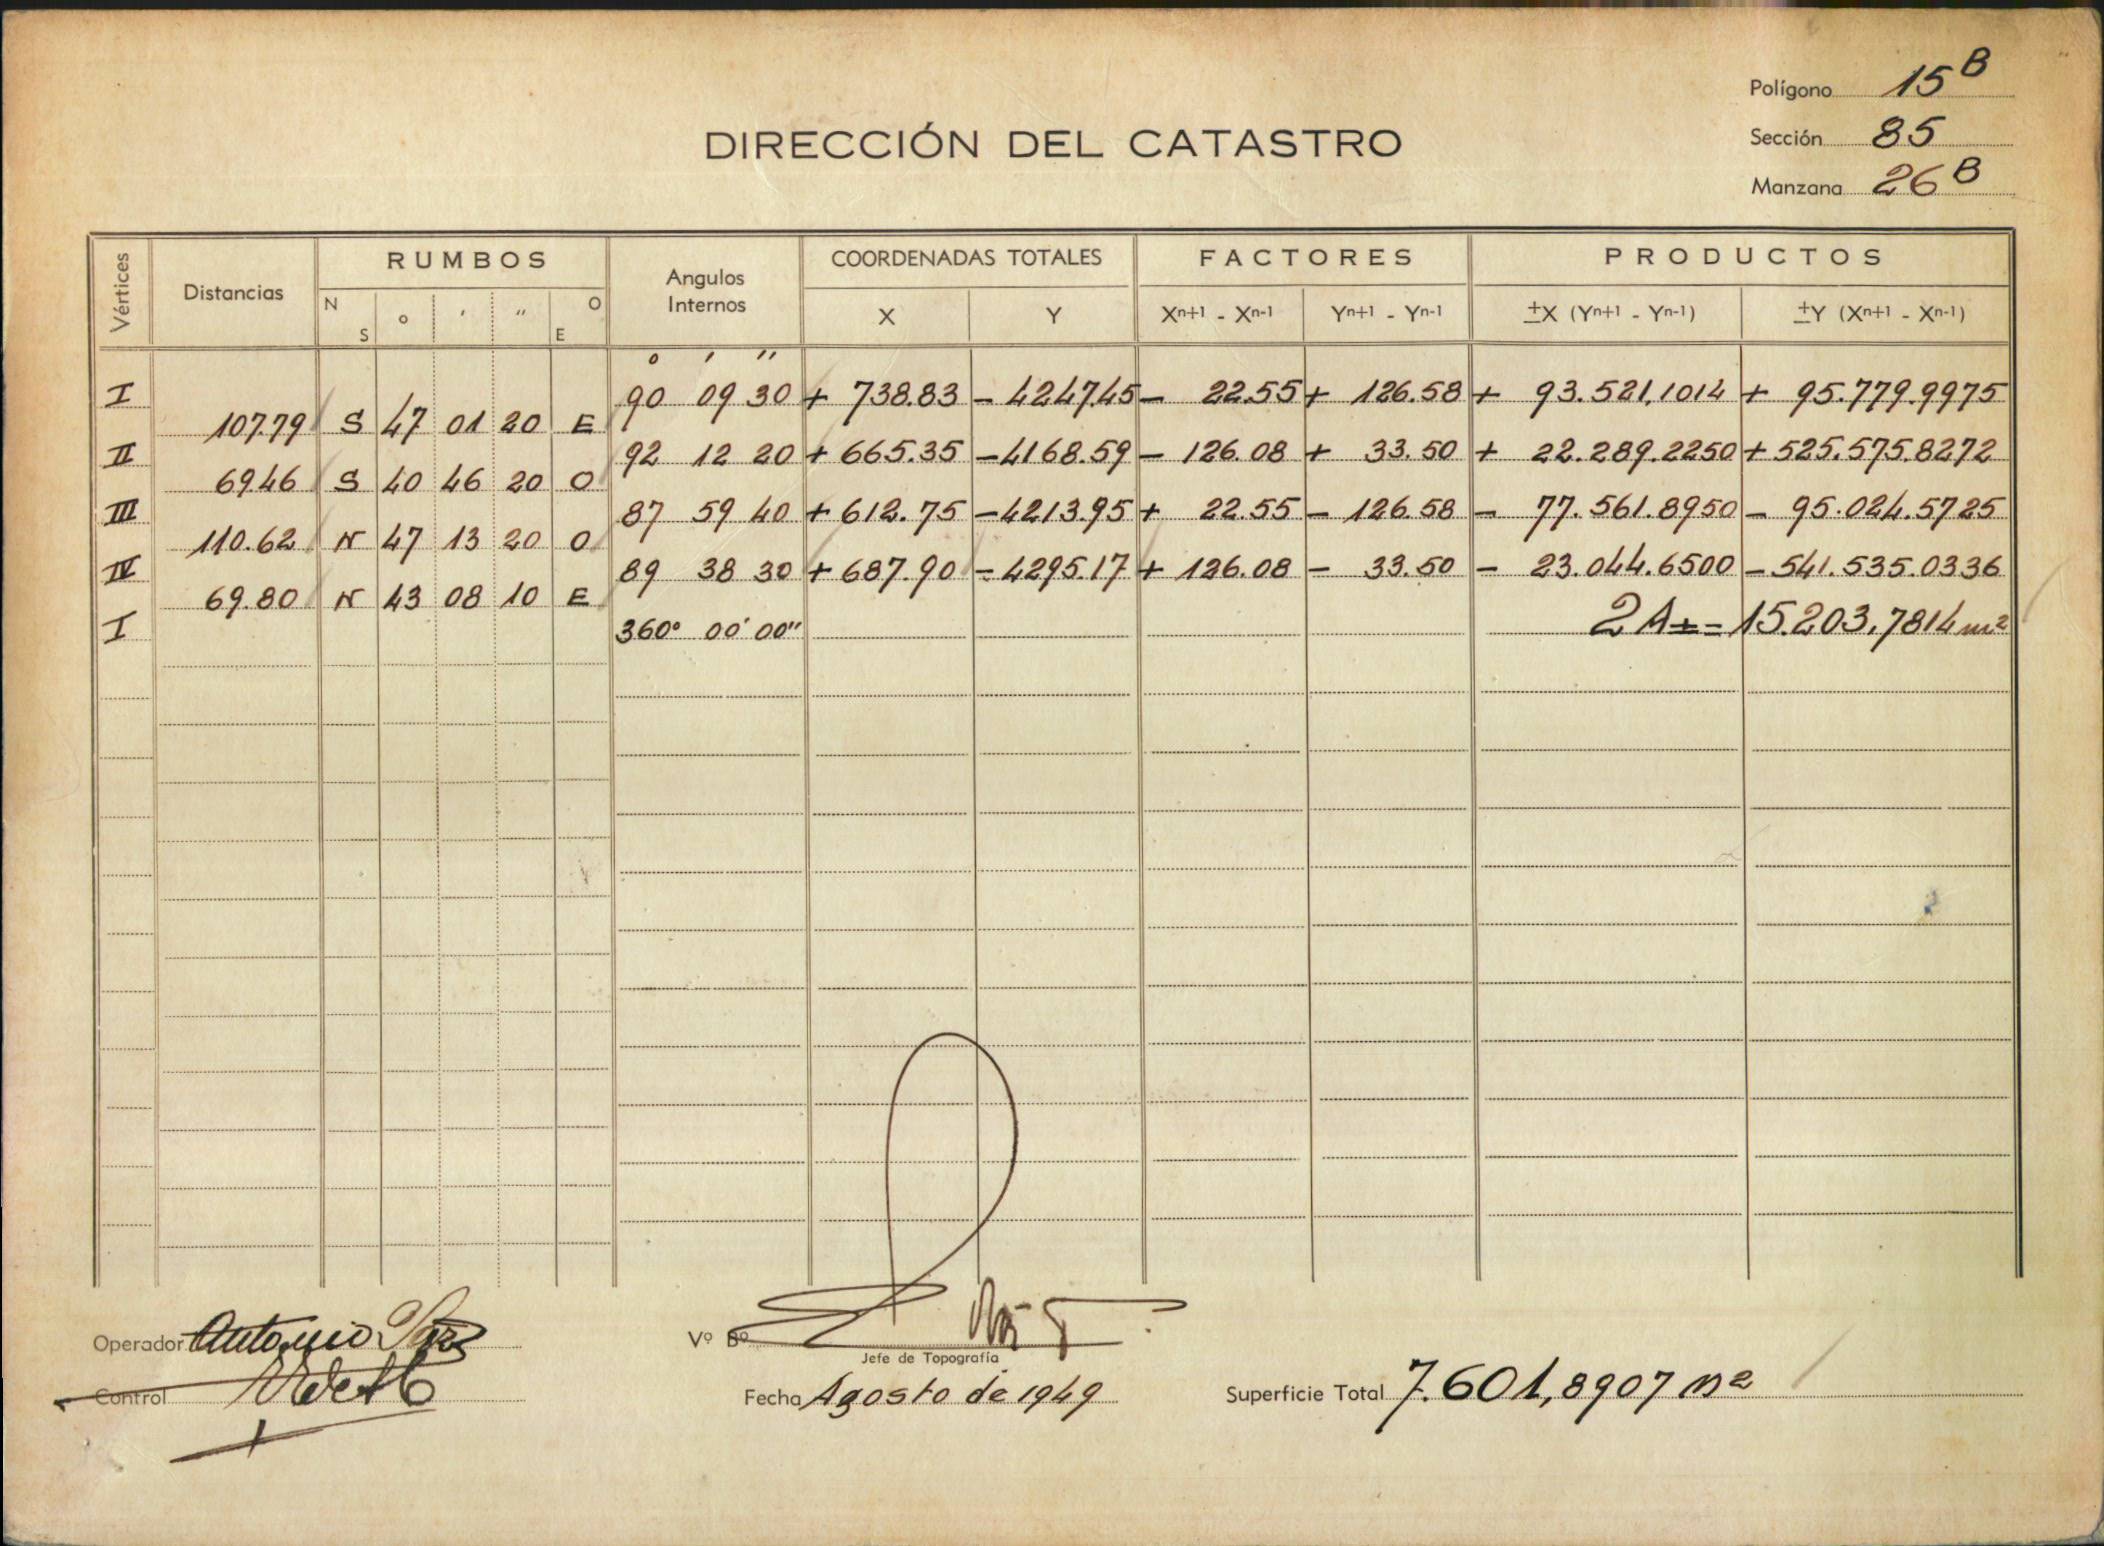 Polígono 15 B
DIRECCIÓN DEL CATASTRO
Sección 85
Manzana 26 B
Vértices Distancias RUMBOS Angulos Internos COORDENADAS TOTALES FACTORES PRODUCTOS
N S ° ' " O E X Y Xn+1 - Xn-1 Yn+1 - Yn-1 ±X (Yn+1 - Yn-1) ±Y (Xn+1 - Xn-1)
° ' "
I 90 09 30 + 738.83 - 4247.45 - 22.55 + 126.58 + 93.521,1014 + 95.779.9975
107.79 S 47 01 20 E
II 92 12 20 + 665.35 - 4168.59 - 126.08 + 33.50 + 22.289.2250 + 525.575.8272
69.46 S 40 46 20 O
III 87 59 40 + 612.75 - 4213.95 + 22.55 - 126.58 - 77.561.8950 - 95.024.5725
110.62 N 47 13 20 O
IV 89 38 30 + 687.90 - 4295.17 + 126.08 - 33.50 - 23.044.6500 - 541.535.0336
69.80 N 43 08 10 E
I 360° 00' 00" 2A = - 15.203,7814 m²
Operador Antonio
Vº Bº
Jefe de Topografía
Control
Fecha Agosto de 1949
Superficie Total 7.601,8907 m²